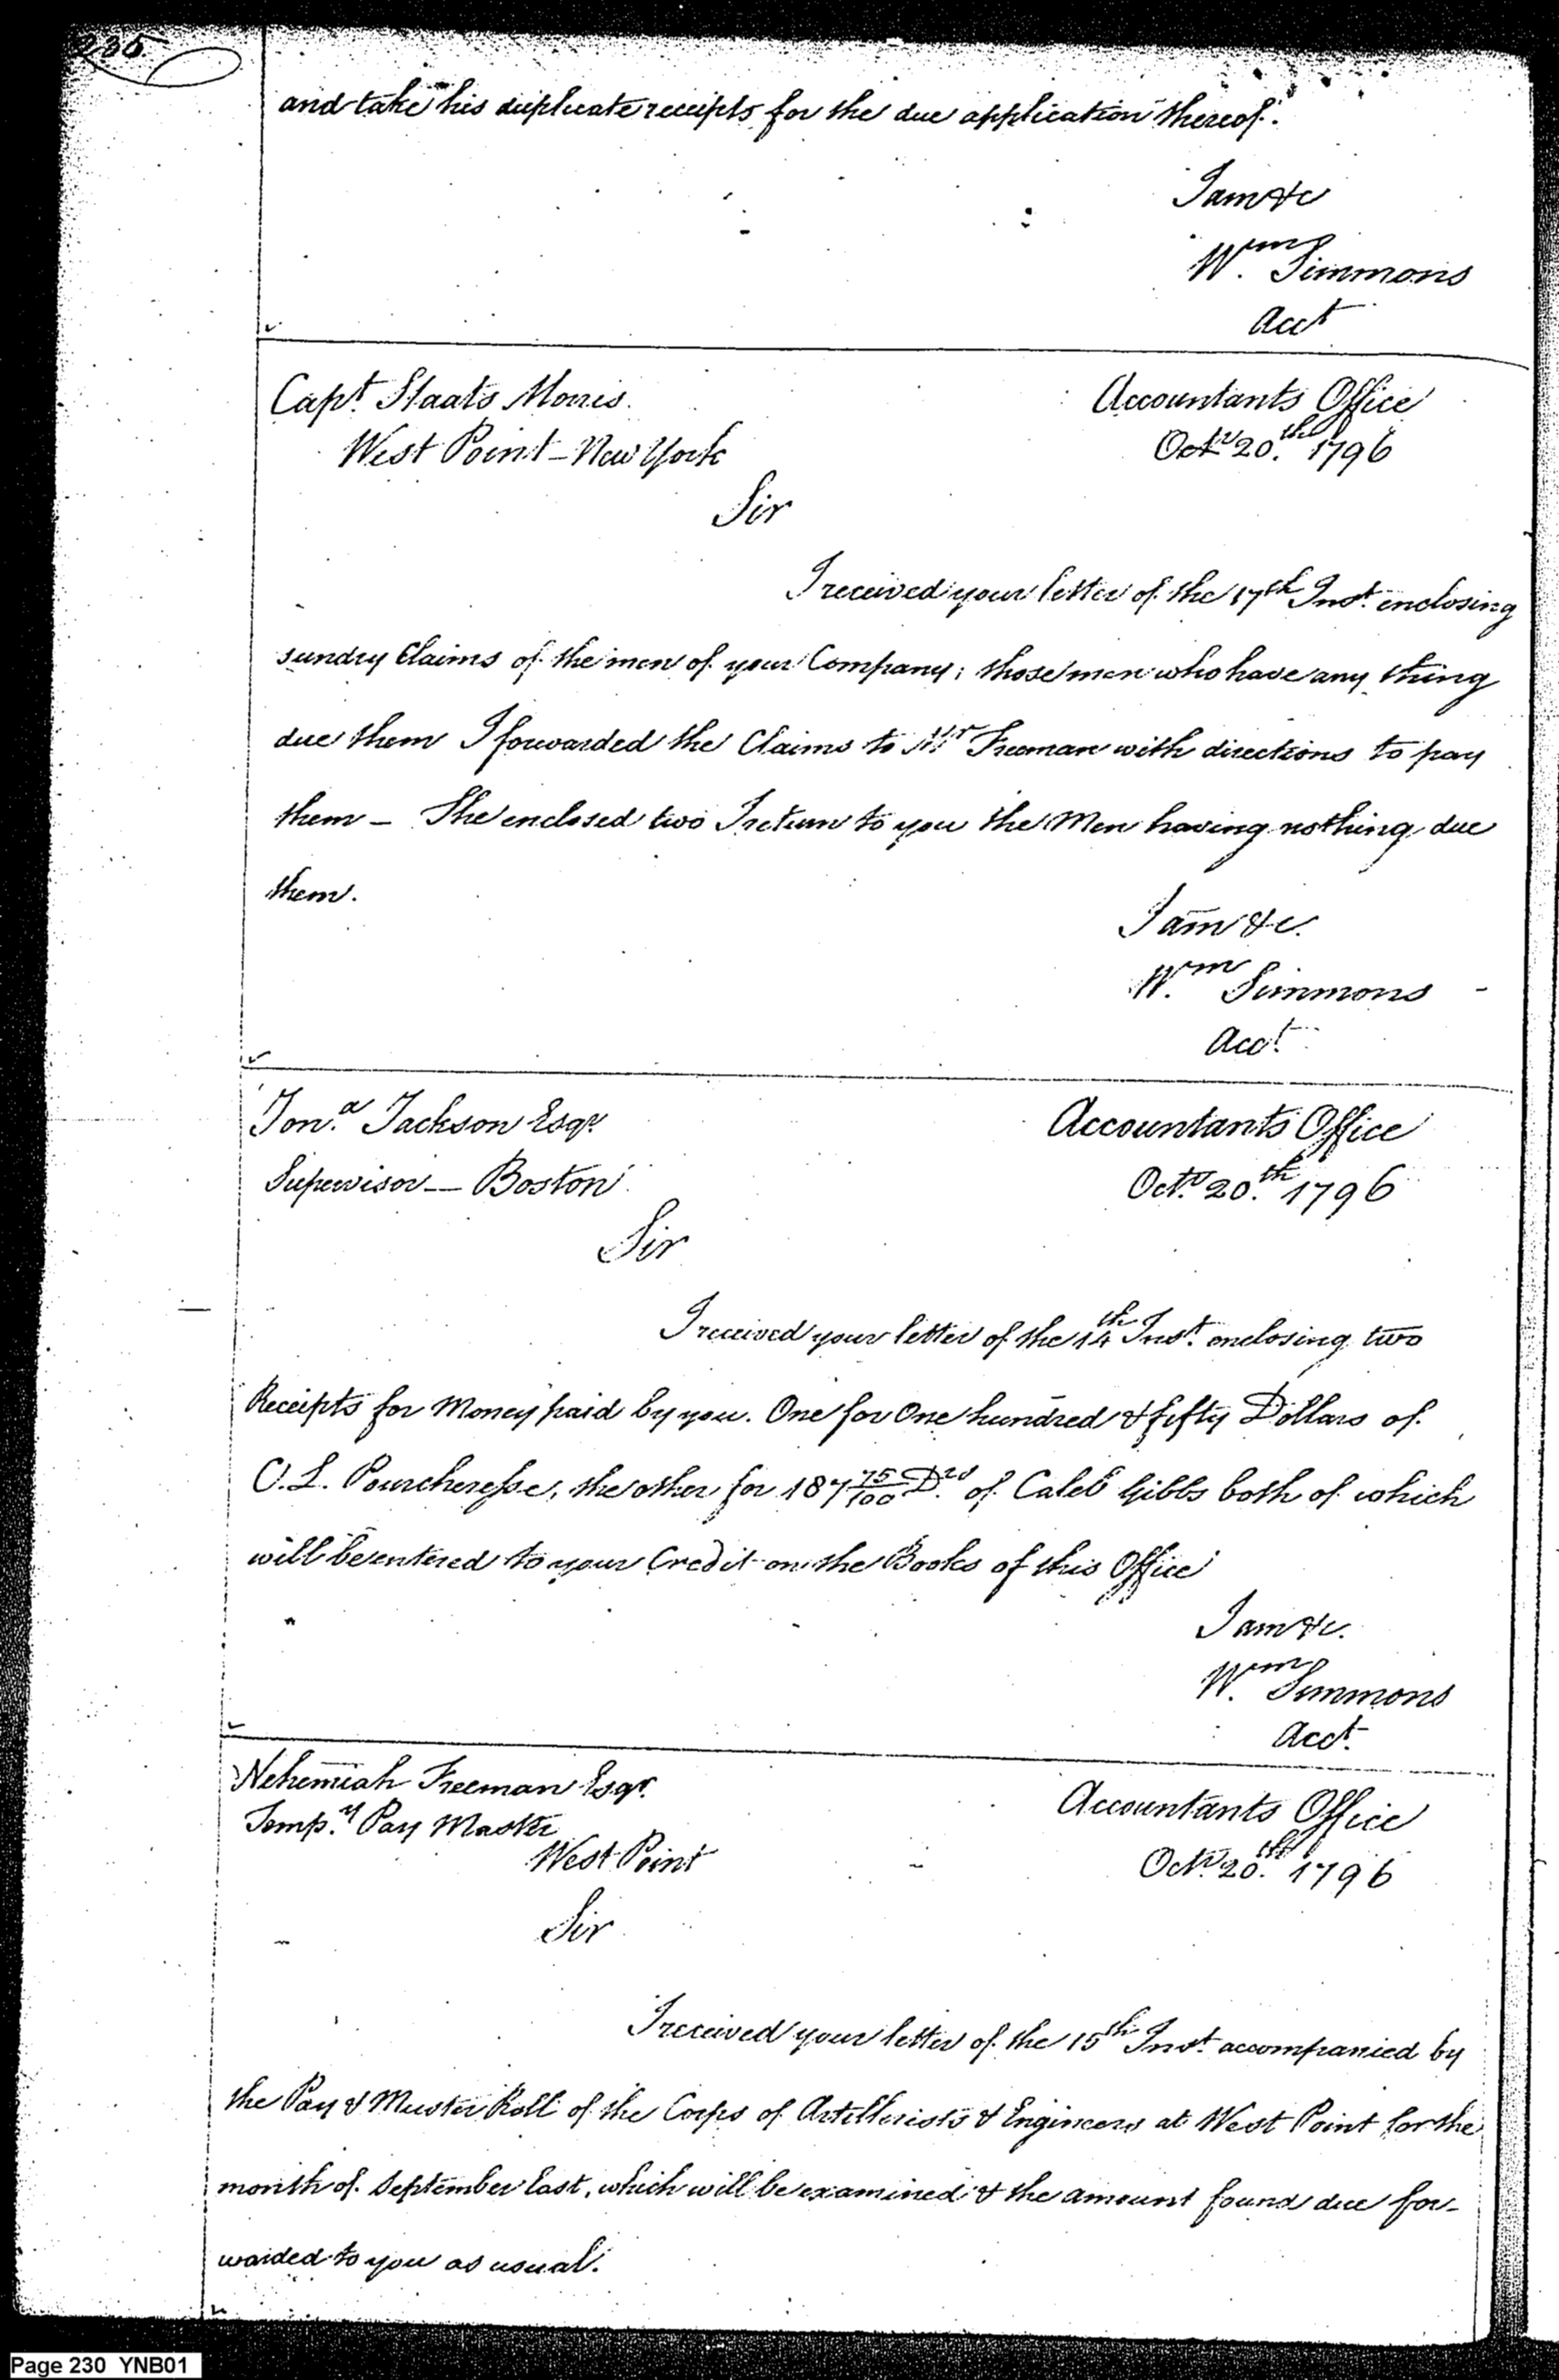 235
and take his duplicate receipts for the due application thereof.
I am &c
Wm. Simmons
Acct
Capt. Staats Morris.
Accountants Office
West Point - New York
Octr. 20th. 1796
Sir
I received your letter of the 17th Inst. enclosing
sundry Claims of the men of your Company; those men who have any thing
due them I forwarded the Claims to Mr Freeman with directions to pay
them - The enclosed two I return to you the Men having nothing due
them.
I am &c.
Wm. Simmons
Acct.
Jona. Jackson Esqr.
Accountants Office
Supervisor - Boston
Octr. 20th. 1796
Sir
I received your letter of the 14th Inst. enclosing two
Receipts for Money paid by you. One for One hundred & fifty Dollars of
O. L. Pourcheresse, the other for 187 75/100 Drs. of Caleb Gibbs both of which
will be entered to your Credit on the Books of this Office
I am &c.
Wm. Simmons
Acct.
Nehemiah Freeman Esqr.
Accountants Office
Tempy. Pay Master
West Point
Octr. 20th. 1796
Sir
I received your letter of the 15th Inst. accompanied by
the Pay & Muster Roll of the Corps of Artillerists & Engineers at West Point for the
month of September last, which will be examined & the amount found due for-
warded to you as usual.
Page 230 YNB01